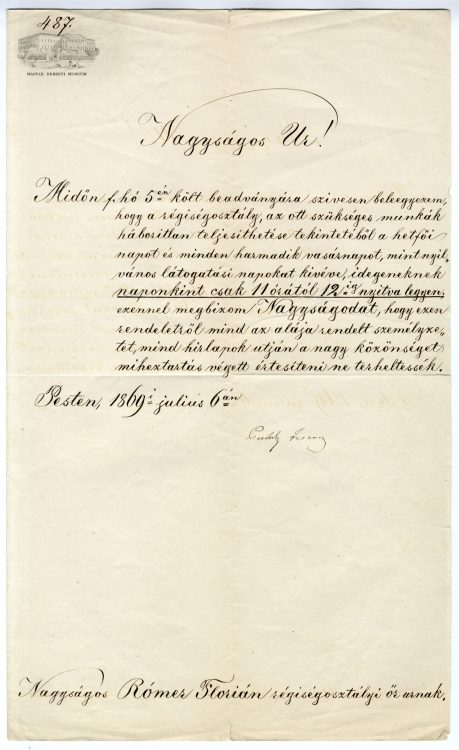 487.
MAGYAR NEMZETI MUZEUM
Nagyságos Ur!
Midőn f. hó 5én költ beadványára szivesen beleegyezem,
hogy a régiségosztály, az ott szükséges munkák
háboritlan teljesithetése tekintetéből a hetfői
napot és minden harmadik vasárnapot, mint nyil-
vános látogatási napokat kivéve, idegeneknek
naponkint csak 11 órától 12ig nyitva legyen;
ezennel megbizom Nagyságodat, hogy ezen
rendeletről mind az alája rendelt személyze-
tet, mind hirlapok utján a nagy közönséget
miheztartás végett értesiteni ne terheltessék.
Pesten, 1869i julius 6án
Ferencz
Nagyságos Rómer Flórián régiségosztályi őr urnak.